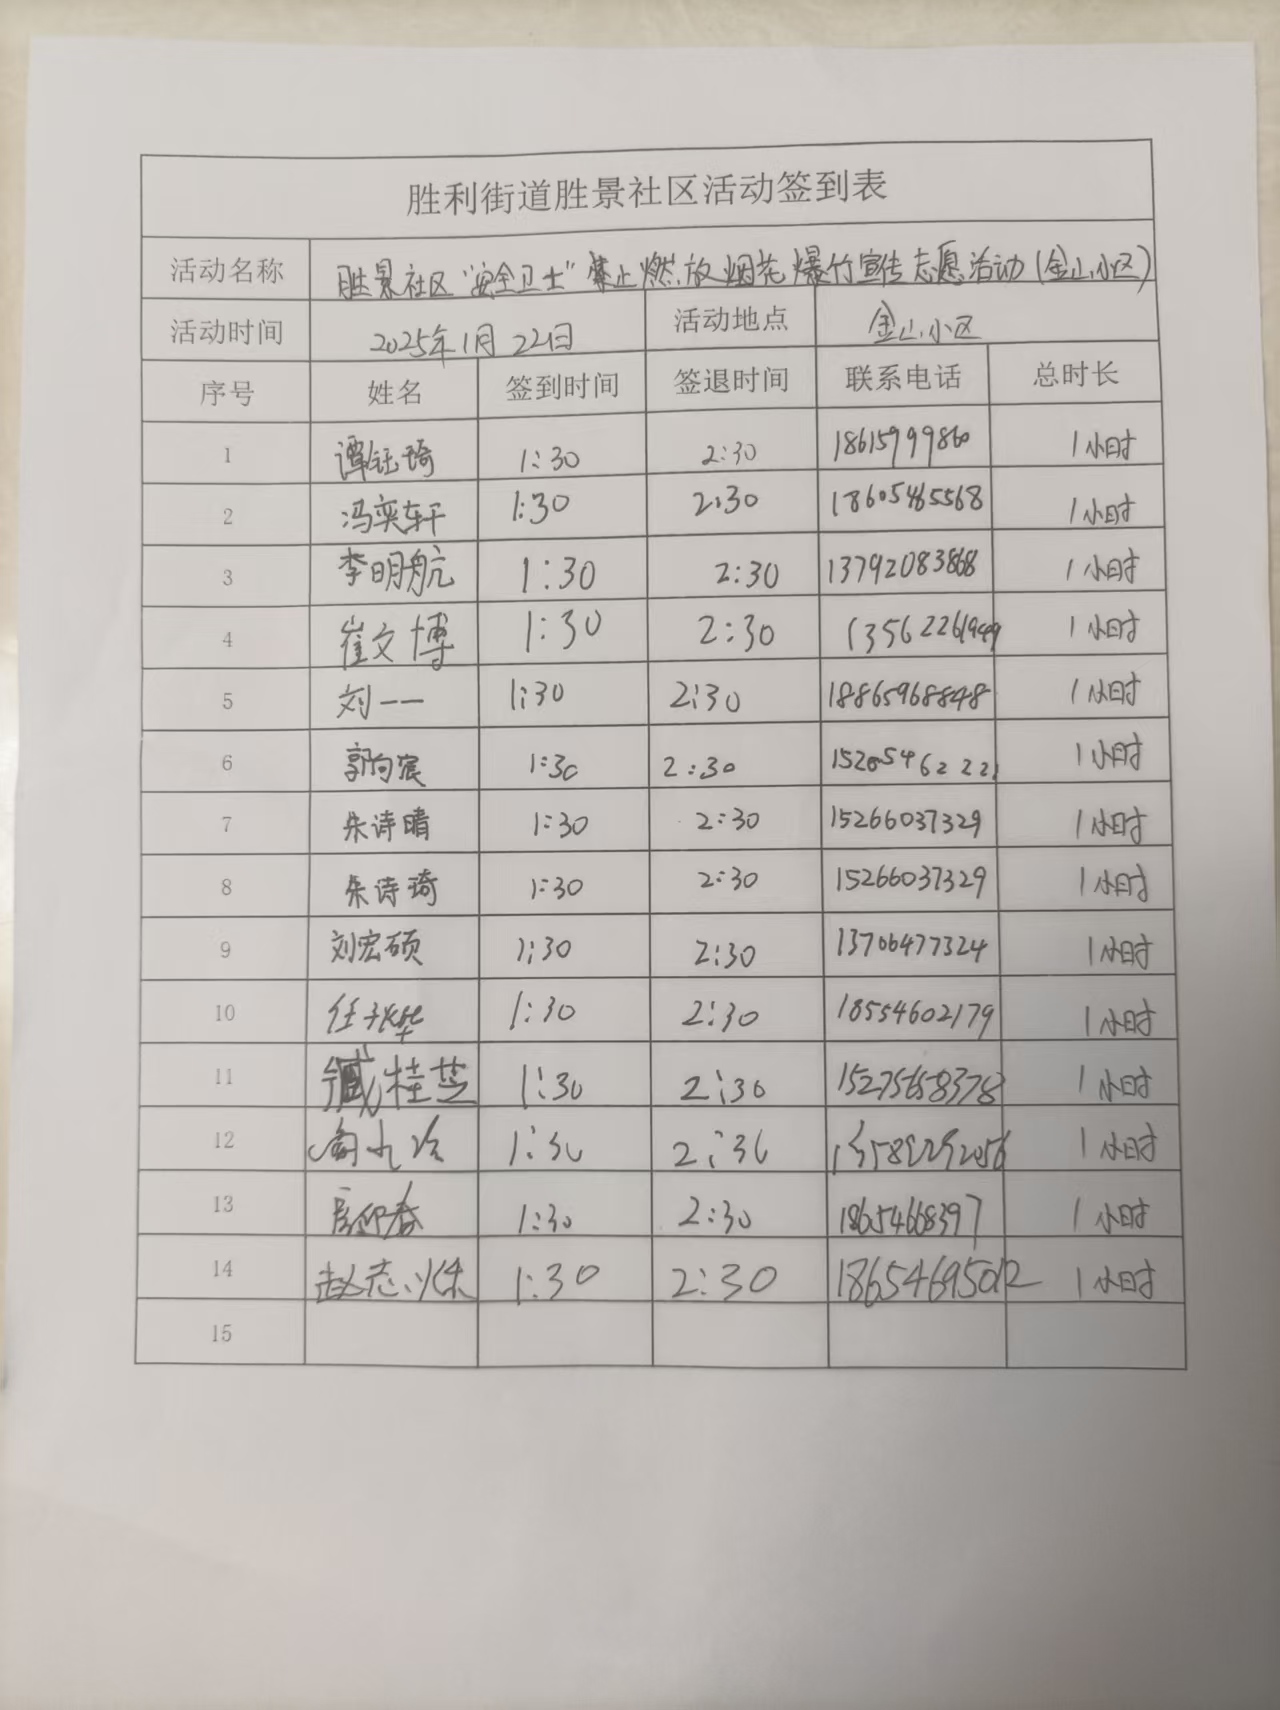 胜利街道胜景社区活动签到表
活动名称 胜景社区“安全卫士”禁止燃放烟花爆竹宣传志愿活动(金山小区)
活动时间 2025年1月22日 活动地点 金山小区
序号 姓名 签到时间 签退时间 联系电话 总时长
1 谭钰琦 1:30 2:30 18615999860 1小时
2 冯奕轩 1:30 2:30 18605465568 1小时
3 李明航 1:30 2:30 13792083868 1小时
4 崔文博 1:30 2:30 1小时
5 刘一一 1:30 2:30 18865968848 1小时
6 郭向宸 1:30 2:30 15205462221 1小时
7 朱诗晴 1:30 2:30 15266037329 1小时
8 朱诗琦 1:30 2:30 15266037329 1小时
9 刘宏硕 1:30 2:30 13706477324 1小时
10 任子烨 1:30 2:30 18554602179 1小时
11 臧桂芝 1:30 2:30 15275658378 1小时
12 1:30 2:30 1小时
13 房迎春 1:30 2:30 1865468397 1小时
14 赵志 1:30 2:30 18654695012 1小时
15